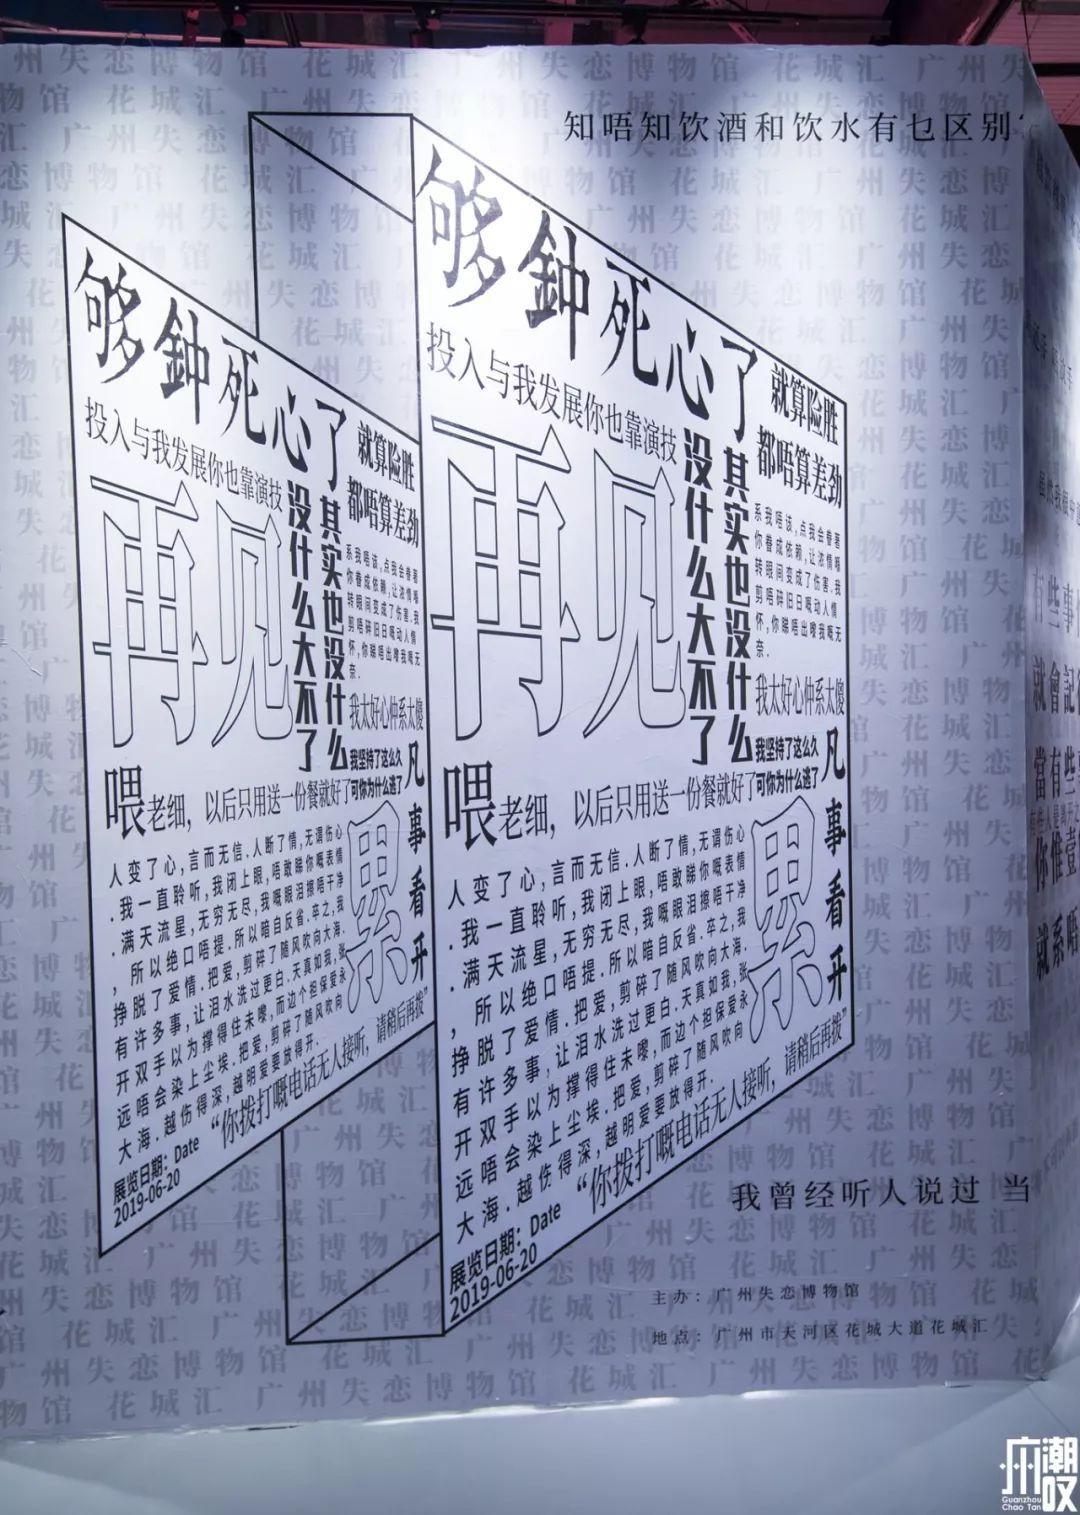 知唔知饮酒和饮水有乜区别?
够鈡死心了
投入与我发展你也靠演技
就算险胜
都唔算差劲
再见
其实也没什么
没什么大不了
系我唔该,点我会眷著
你眷成依赖,让浓情唔
转眼间变成了伤害.我
剪唔碎旧日嘅动人情
怀,你睇唔出嚟我嘅无
奈.
我太好心仲系太傻
我坚持了这么久
可你为什么逃了
凡事看开
喂老细，以后只用送一份餐就好了
累
人变了心,言而无信.人断了情,无谓伤心
.我一直聆听,我闭上眼,唔敢睇你嘅表情
.满天流星,无穷无尽,我嘅眼泪擦唔干净
,所以绝口唔提.所以暗自反省.卒之,我
挣脱了爱情.把爱,剪碎了随风吹向大海.
有许多事,让泪水洗过更白.天真如我,张
开双手以为撑得住未嚟,而边个担保爱永
远唔会染上尘埃.把爱,剪碎了随风吹向
大海.越伤得深,越明爱要放得开.
“你拨打嘅电话无人接听，请稍后再拨”
展览日期：Date
2019-06-20
够鈡死心了
投入与我发展你也靠演技
就算险胜
都唔算差劲
再见
其实也没什么
没什么大不了
系我唔该,点我会眷著
你眷成依赖,让浓情唔
转眼间变成了伤害.我
剪唔碎旧日嘅动人情
怀,你睇唔出嚟我嘅无
奈.
我太好心仲系太傻
我坚持了这么久
可你为什么逃了
凡事看开
喂老细，以后只用送一份餐就好了
累
人变了心,言而无信.人断了情,无谓伤心
.我一直聆听,我闭上眼,唔敢睇你嘅表情
.满天流星,无穷无尽,我嘅眼泪擦唔干净
,所以绝口唔提.所以暗自反省.卒之,我
挣脱了爱情.把爱,剪碎了随风吹向大海.
有许多事,让泪水洗过更白.天真如我,张
开双手以为撑得住未嚟,而边个担保爱永
远唔会染上尘埃.把爱,剪碎了随风吹向
大海.越伤得深,越明爱要放得开.
“你拨打嘅电话无人接听，请稍后再拨”
展览日期：Date
2019-06-20
我曾经听人说过 当
主办：广州失恋博物馆
地点：广州市天河区花城大道花城汇
广州失恋博物馆 花城汇
有些事
就會記
當有些
你惟壹
就系唔
广州潮叹
Guangzhou
Chao Tan